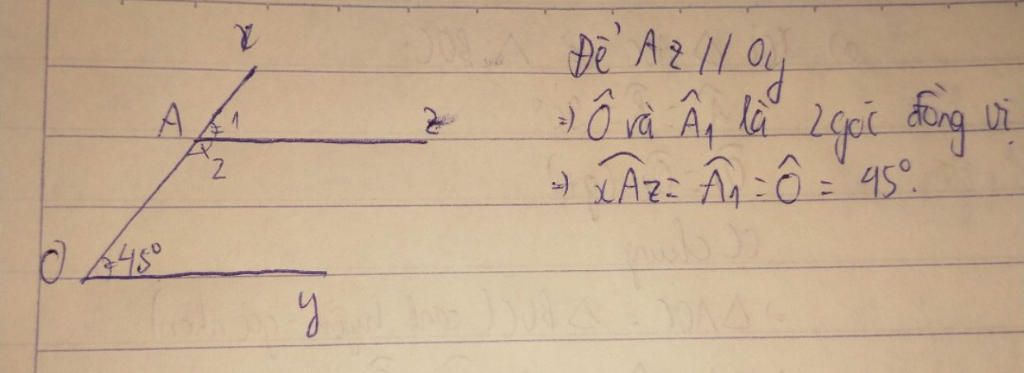 x
A 1 z
2
O 45°
y
Để Az // Oy
=) Ô và Â₁ là 2 góc đồng vị
=) xÂz = Â₁ = Ô = 45°.